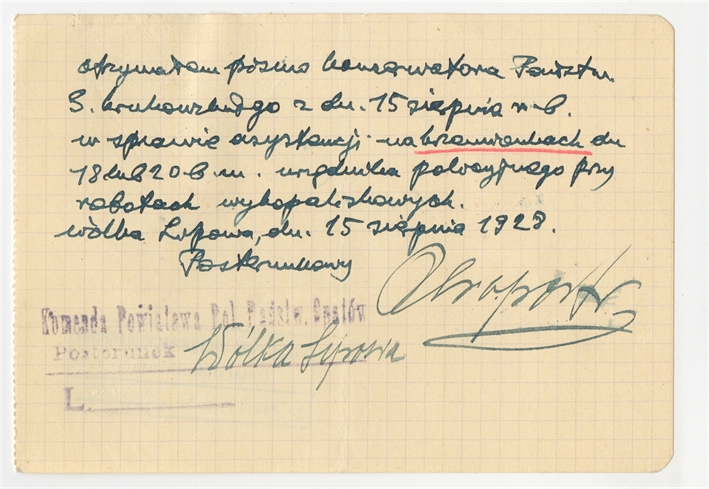 otrzymałam pismo konserwatora Państw.
S. Krukowskiego z dn. 15 sierpnia r-b.
w sprawie asystancji na krzemionkach dn
18 lub 20 b. m. urzędnika policyjnego przy
robotach wykopaliskowych.
Wólka Lipowa, dn. 15 sierpnia 1928.
Posterunkowy
Komenda Powiatowa Pol. Państw. Opatów
Posterunek Wólka Lipowa
L.